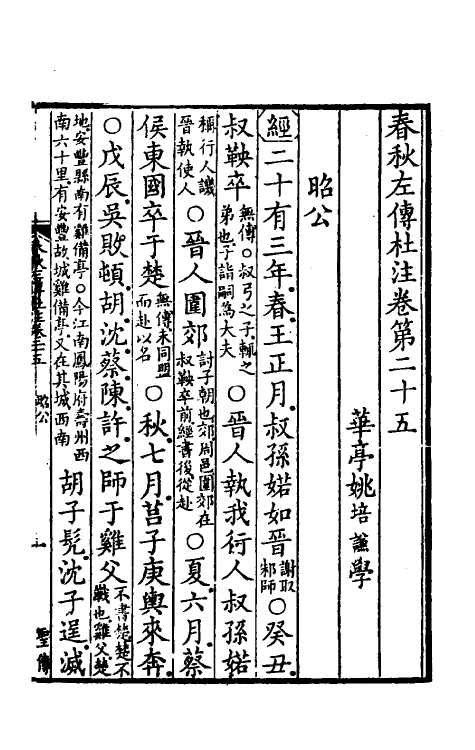 春秋左傳杜注卷第二十五
華亭姚培謙學
昭公
經二十有三年春王正月叔孫婼如晉謝取邾師○癸丑
叔鞅卒無傳○叔弓之子輒之弟也子詣嗣為大夫○晉人執我行人叔孫婼
稱行人譏晉執使人○晉人圍郊討子朝也郊周邑圍郊在叔鞅卒前經書後從赴○夏六月蔡
侯東國卒于楚無傳未同盟而赴以名○秋七月莒子庚輿來奔
○戊辰吳敗頓胡沈蔡陳許之師于雞父不書楚楚不戰也雞父楚
地安豐縣南有雞備亭○今江南鳳陽府壽州西南六十里有安豐故城雞備亭又在其城西南胡子髡沈子逞滅
昭公
一